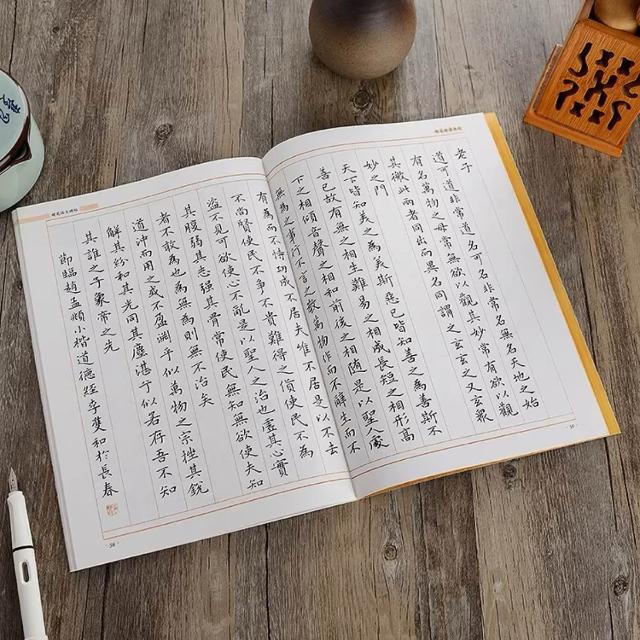 老子
道可道非常道名可名非常名無名天地之始
有名萬物之母常無欲以觀其妙常有欲以觀
其徼此兩者同出而異名同謂之玄玄之又玄衆
妙之門
天下皆知美之為美斯惡已皆知善之為善斯不
善已故有無之相生難易之相成長短之相形高
下之相傾音聲之相和前後之相隨是以聖人處
無為之事行不言之教萬物作而不辭生而不
有為而不恃功成不居夫惟不居是以不去
不尚賢使民不爭不貴難得之貨使民不為
盜不見可欲使心不亂是以聖人之治也虛其心實
其腹弱其志强其骨常使民無知無欲使夫知
者不敢為也為無為則無不治矣
道沖而用之或不盈淵乎似萬物之宗挫其銳
解其紛和其光同其塵湛兮似若存吾不知
其誰之子象帝之先
節臨趙孟頫小楷道德經李雙和於長春